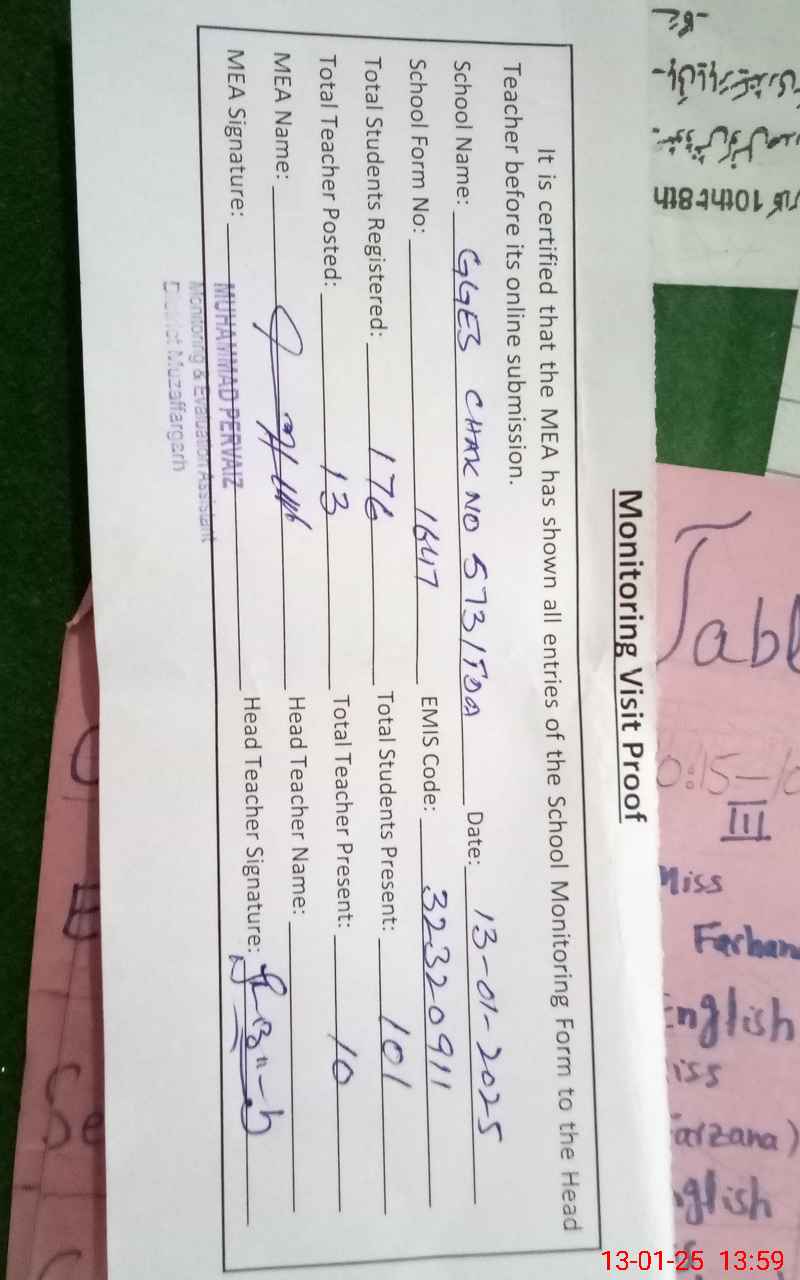 Monitoring Visit Proof
It is certified that the MEA has shown all entries of the School Monitoring Form to the Head
Teacher before its online submission.
School Name: GGES CHAK NO 573/TDA Date: 13-01-2025
School Form No: 1647 EMIS Code: 32320911
Total Students Registered: 176 Total Students Present: 101
Total Teacher Posted: 13 Total Teacher Present: 10
MEA Name: Head Teacher Name:
MEA Signature: Head Teacher Signature:
MUHAMMAD PERVAIZ
Monitoring & Evaluation Assistant
District Muzaffargarh
10th 8th
Tabl
0:15-10
III
Miss
Farhan
English
iss
arzana)
glish
Se
13-01-25 13:59